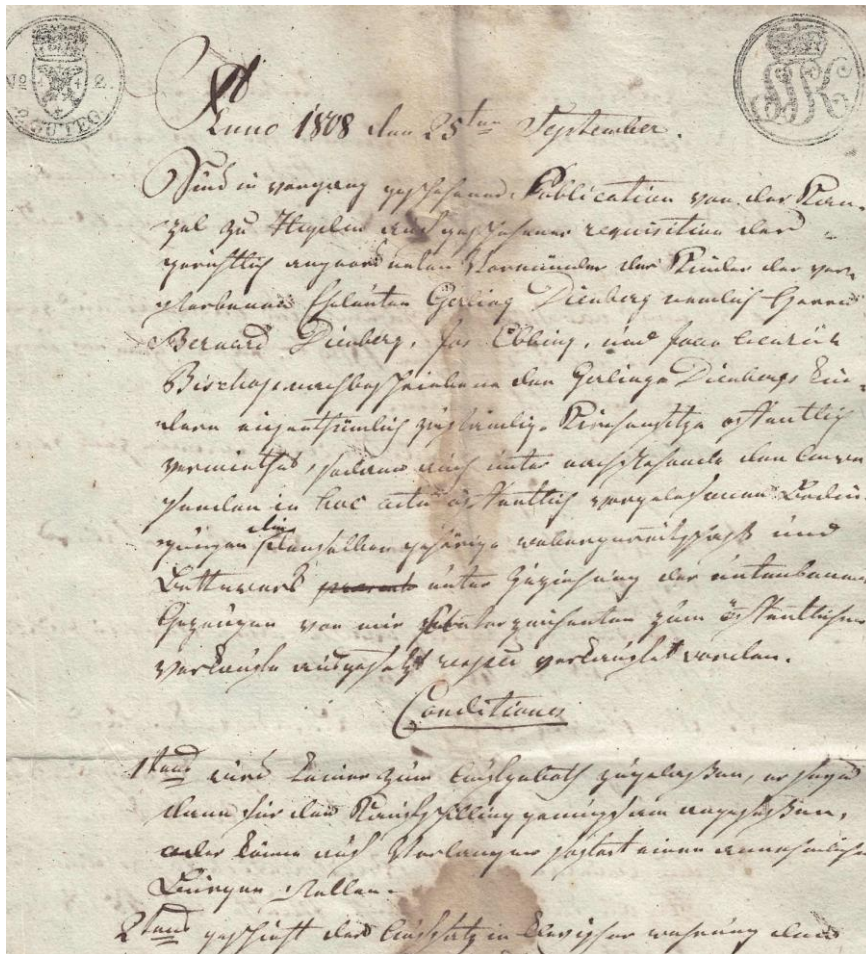 No 2.
2. GUTEG.
Anno 1808 den 25ten September.
Sind in vorgang geschehener Publication von der Kan-
zel zu auch geschehener requisition der
gerichtlich angeordneten Vormünder der Kinder der ver-
storbenen Eheleuten Gerling Dienberg nemlich Herrn
Bernard Dienberg, Jos Ebbing, und Joan Henrich
Bischop nachbeschriebene den Gerlings Dienbergs Kin-
dern eigenthümlich zuständige Kirchensitze öffentlich
vermiethet, sodann auch unter nachstehende den
in hoc actu öffentlich vorgelesenen Bedin-
gungen die denselben gehörige webergereitschaft und
Bettwerk unter Zuziehung der untenbenannten
Gezeugen von mir unterzeichneten zum öffentlichen
verkaufe ausgesetzt und verkaufet worden.
Conditiones
1tens wird keiner zum Aufgeboth zugelaßen, er seye
dann für den Kaufschilling genugsam angeseßen,
oder könne auf Verlangen sofort einen annehmlichen
Bürgen stellen.
2tens geschieht der in Clevischer wehrung